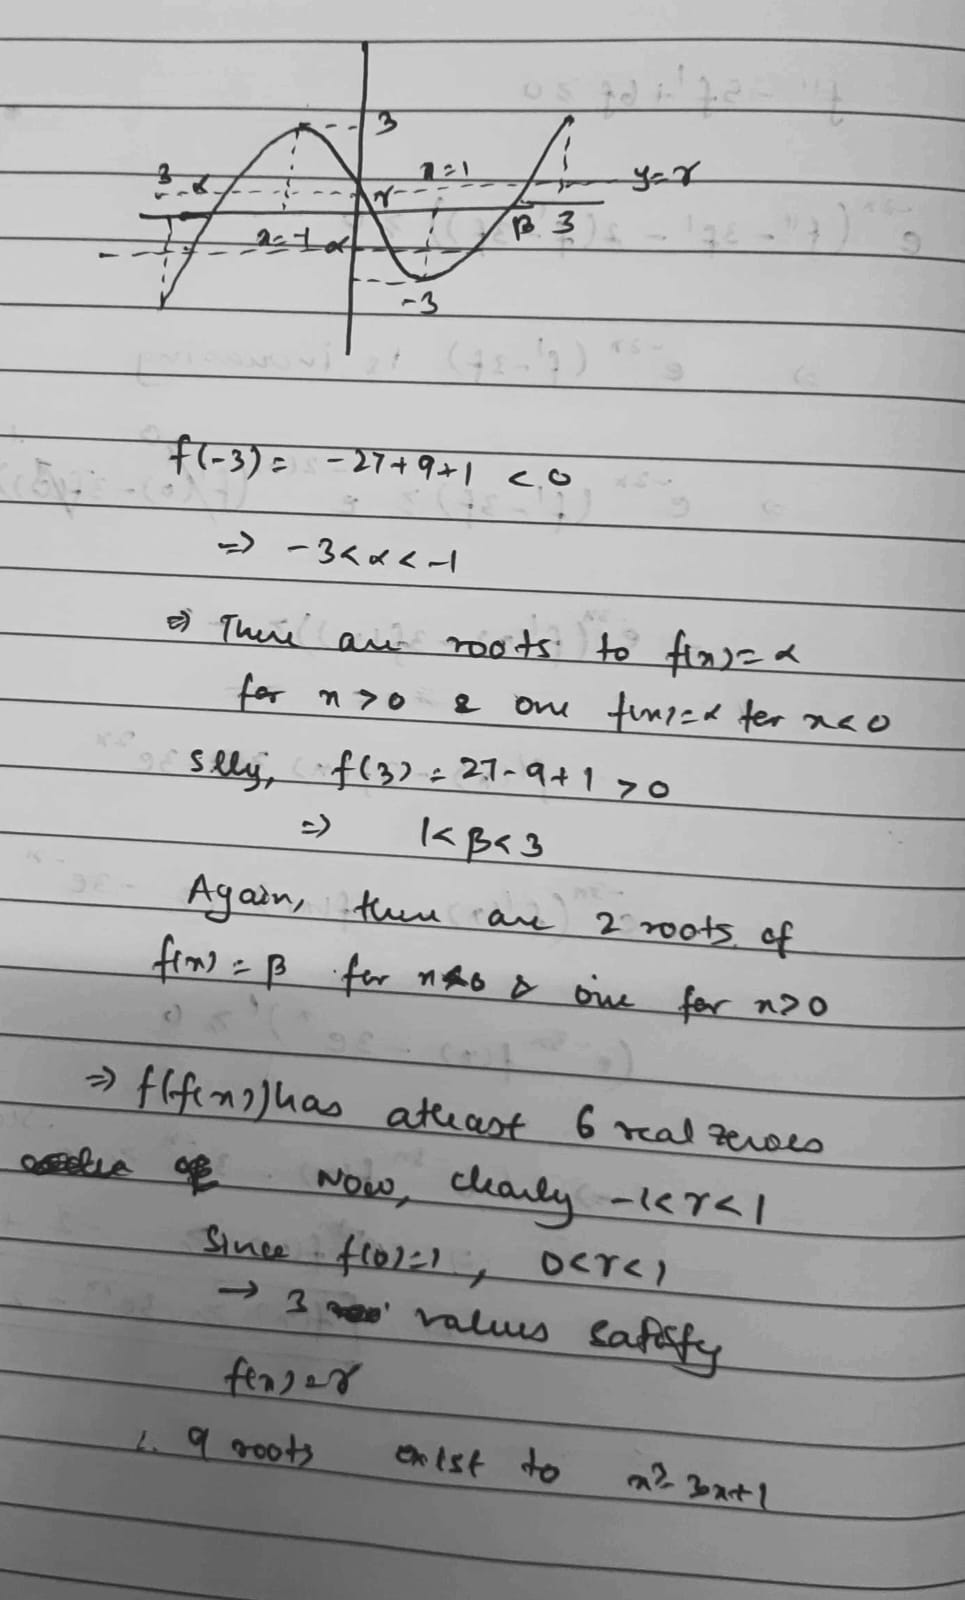 3
3 α
x=1
y=γ
γ
x=-1 α
β 3
-3
f(-3) = -27+9+1 < 0
⇒ -3<α<-1
⇒ There are roots to f(x)=α
for x>0 & one f(x)=α for x<0
slly, f(3) = 27-9+1 >0
⇒ 1<β<3
Again, there are 2 roots of
f(x) = β for x<0 & one for x>0
⇒ f(f(x)) has atleast 6 real zeroes
Now, clearly -1<γ<1
Since f(0)=1, 0<γ<1
→ 3 values satisfy
f(x)=γ
∴ 9 roots exist to x³-3x+1